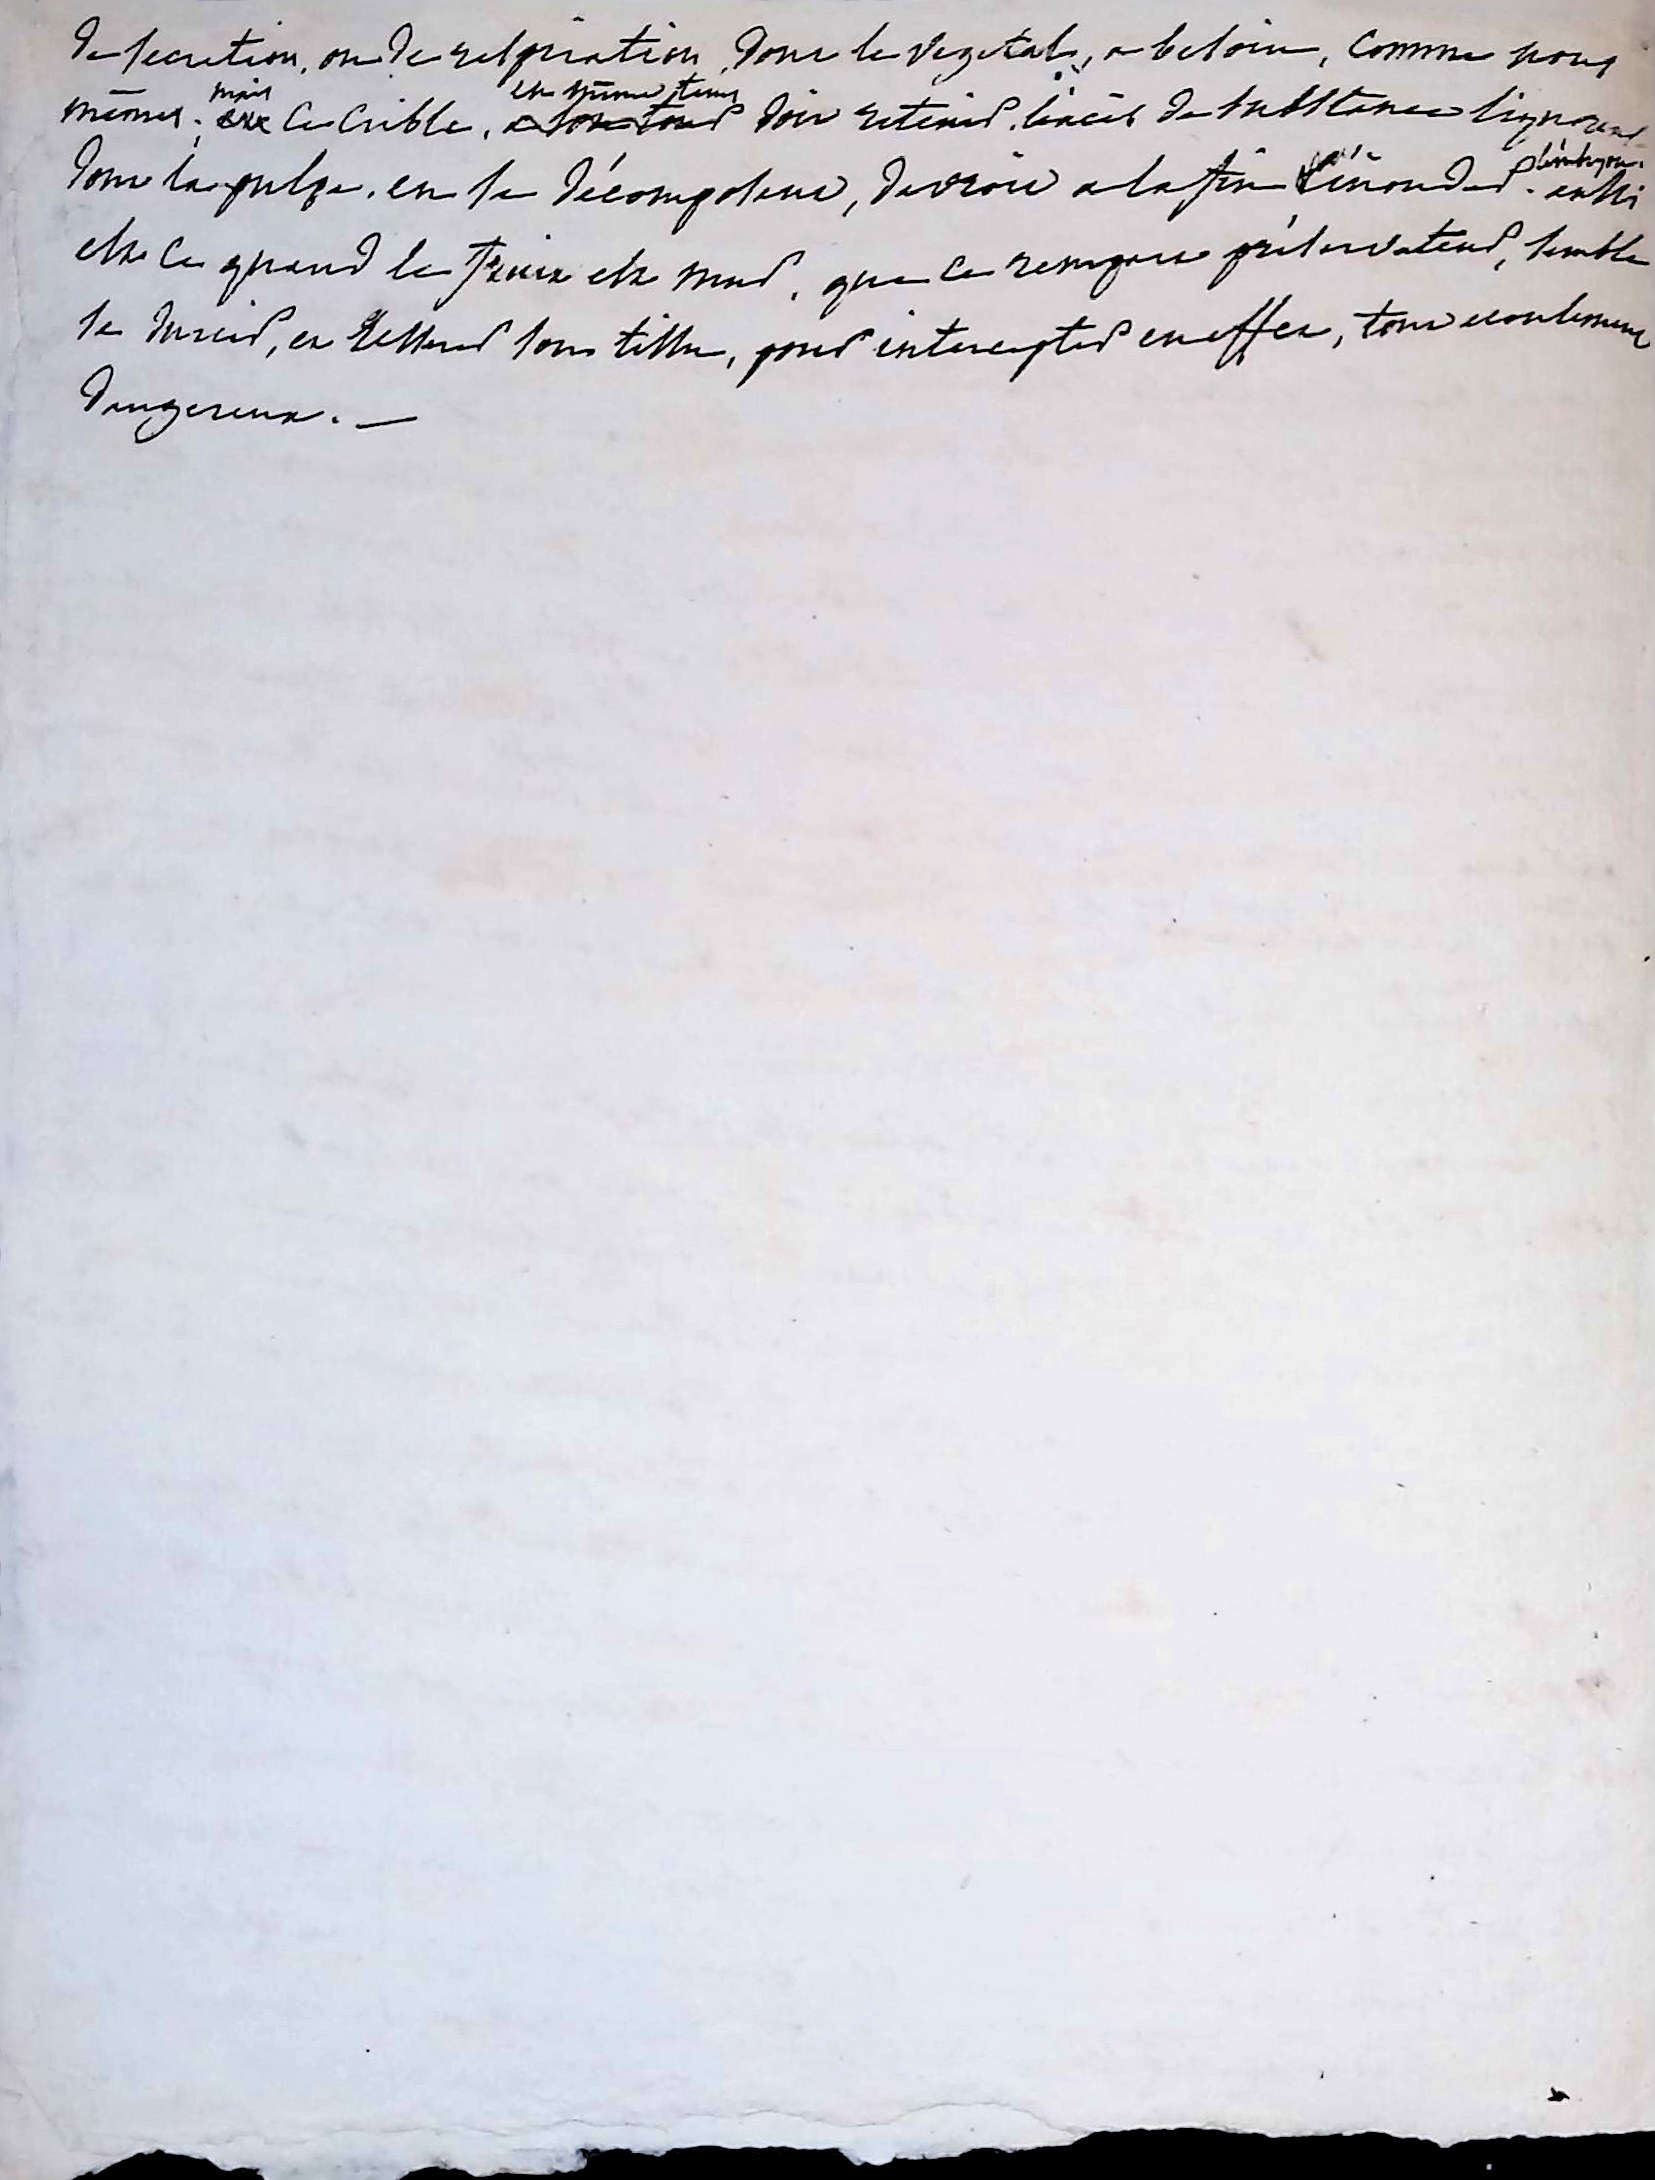 de secretion, ou de respiration, dont le vegetal, a besoin, comme nous
mêmes. mais ce crible, en même tems doit retenir l'excès de substance ligneuse
dont la pulpe, en se décomposant, devroit a la fin inonder l'embryon. aussi
est ce quand le fruit est mur, que ce rempart préservateur, semble
se durcir, et resserrer son tissu, pour intercepter en effet, tout ecoulement
dangereux. —